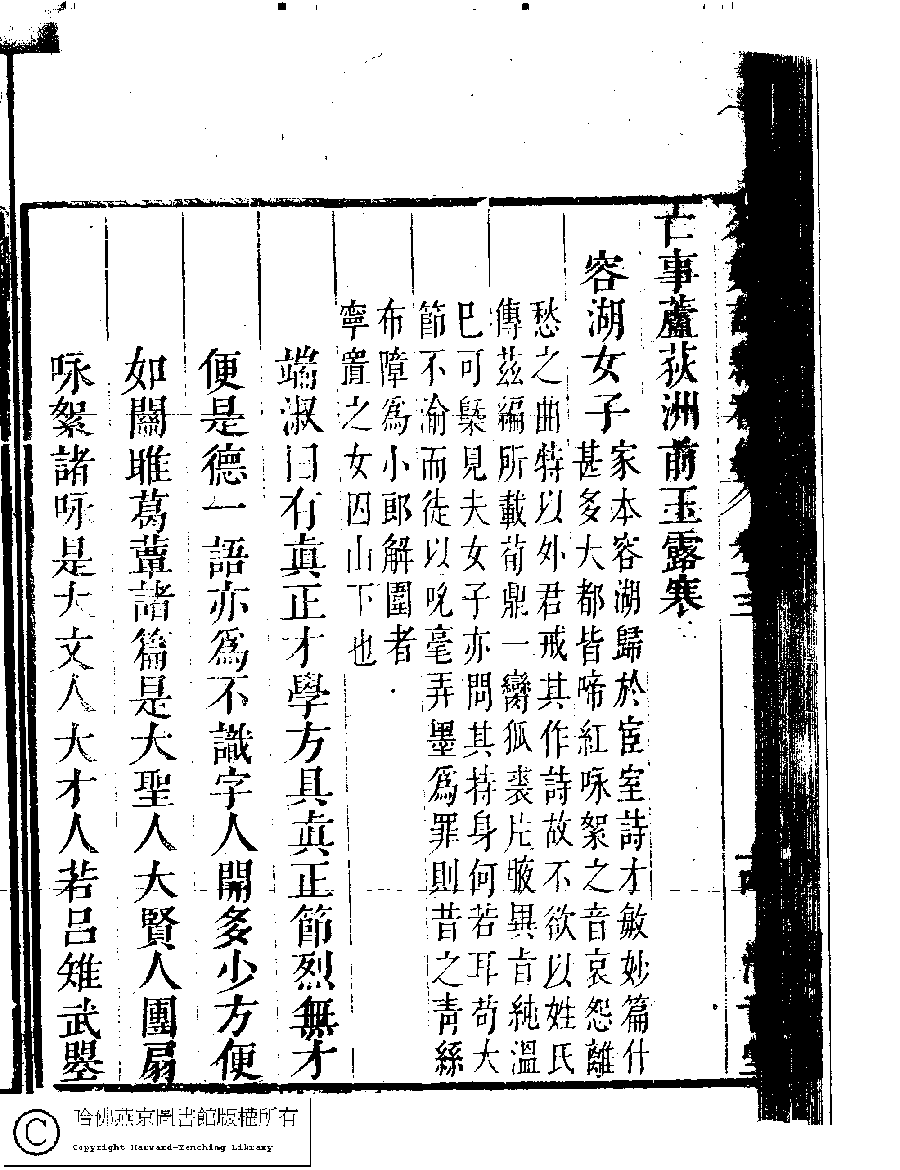 亡事蘆荻洲前玉露寒
容湖女子
家本容湖歸於宦室詩才敏妙篇什
甚多大都皆啼紅咏絮之音哀怨離
愁之曲特以外君戒其作詩故不欲以姓氏
傳茲編所載荀鼎一臠狐裘片腋異旨純溫
巳可槩見夫女子亦問其持身何若耳苟大
節不渝而徒以吮毫弄墨爲罪則昔之靑絲
布障爲小郎解圍者
寧置之女囚山下也
端淑曰有眞正才學方具眞正節烈無才
便是德一語亦爲不識字人開多少方便
如關雎葛蕈諸篇是大聖人大賢人團扇
咏絮諸咏是大文人大才人若呂雉武曌
哈佛燕京圖書館版權所有
Copyright Harvard-Yenching Library